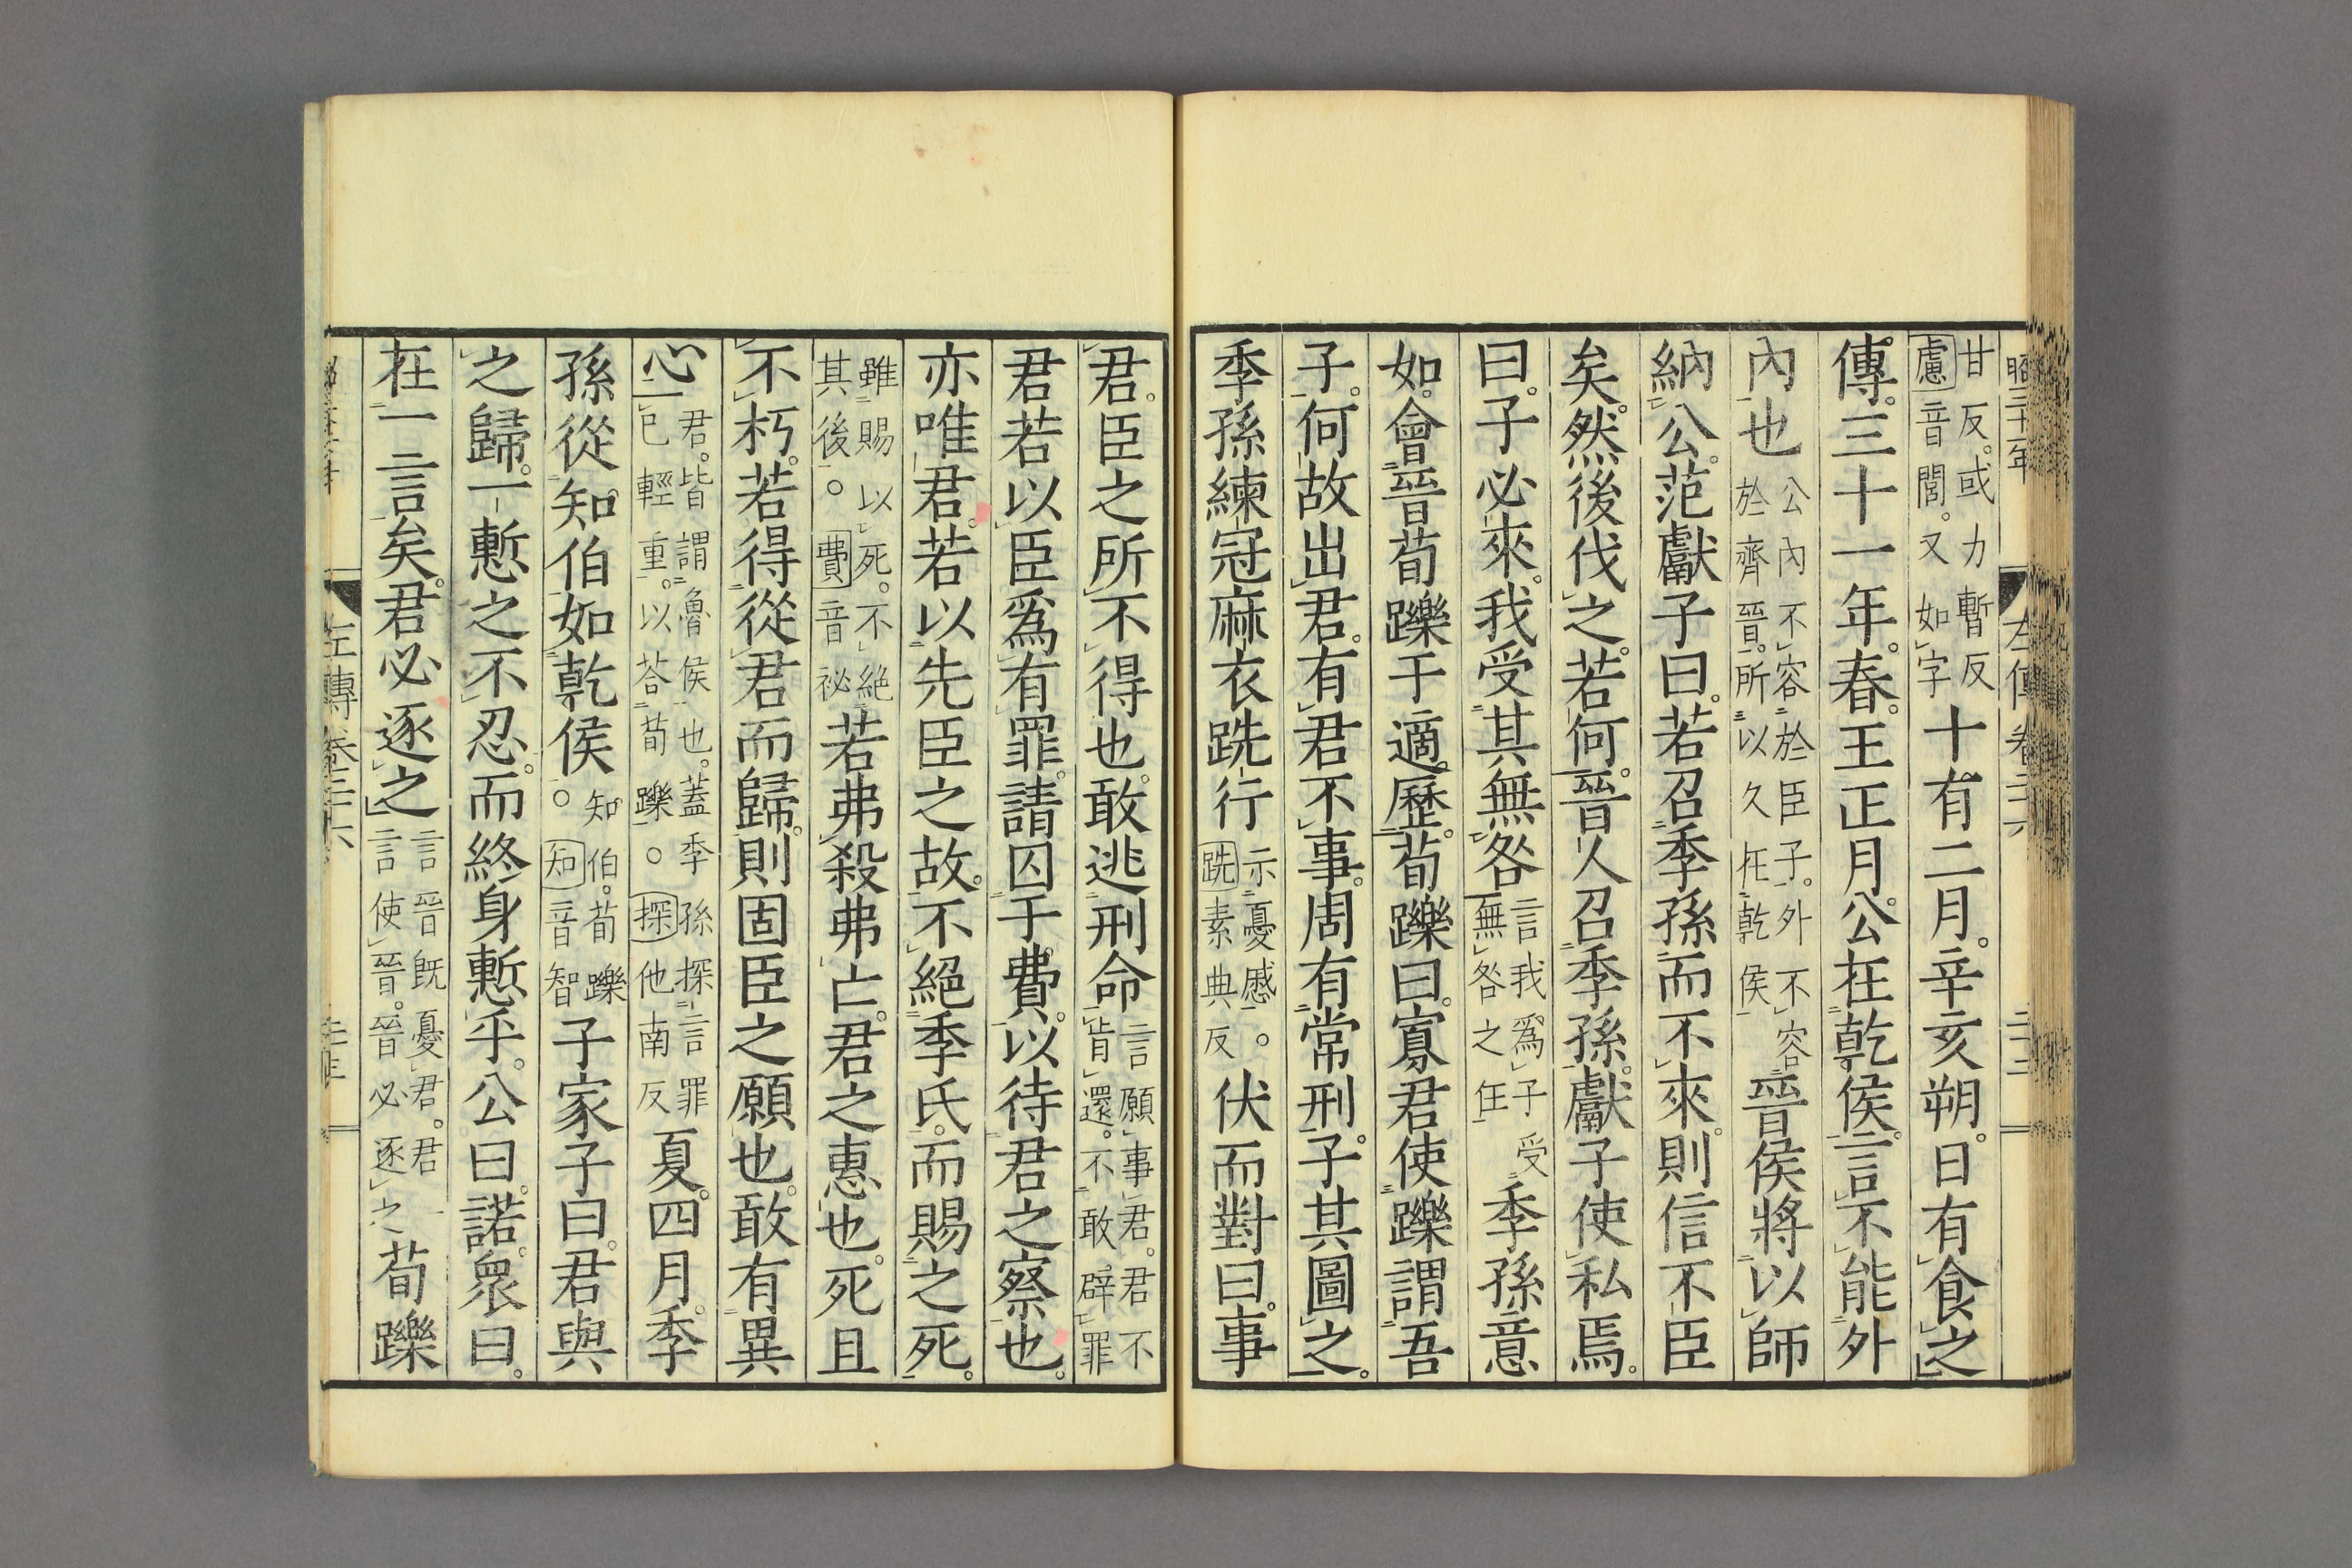 昭三十一年 左傳卷二六
甘反。或力暫反慮音閭。又如字十有二月。辛亥朔。日有食之
傳。三十一年。春。王正月。公在乾侯。言不能外
內也公內不容於臣子。外不容於齊晉。所以久在乾侯晉侯將以師
納公。范獻子曰。若召季孫而不來。則信不臣
矣。然後伐之。若何。晉人召季孫。獻子使私焉。
曰。子必來。我受其無咎言我爲子受無咎之任季孫意
如。會晉荀躒于適歷。荀躒曰。寡君使躒謂吾
子。何故出君。有君不事。周有常刑。子其圖之。
季孫練冠麻衣跣行示憂慼。。跣素典反伏而對曰。事
君。臣之所不得也。敢逃刑命言願事君。君不肯還。不敢辟罪
君若以臣爲有罪。請囚于費。以待君之察也。
亦唯君。若以先臣之故。不絕季氏。而賜之死。
雖賜以死。不絕其後。。費音祕若弗殺弗亡。君之惠也。死且
不朽。若得從君而歸。則固臣之願也。敢有異
心君。皆謂魯侯也。蓋季孫探言罪已輕重。以荅荀躒。。探他南反夏。四月。季
孫從知伯如乾侯知伯。荀躒。。知音智子家子曰。君與
之歸。一慙之不忍。而終身慙乎。公曰。諾。衆曰。
在一言矣。君必逐之言晉既憂君。君一言使晉。晉必逐之荀躒
左傳卷二六